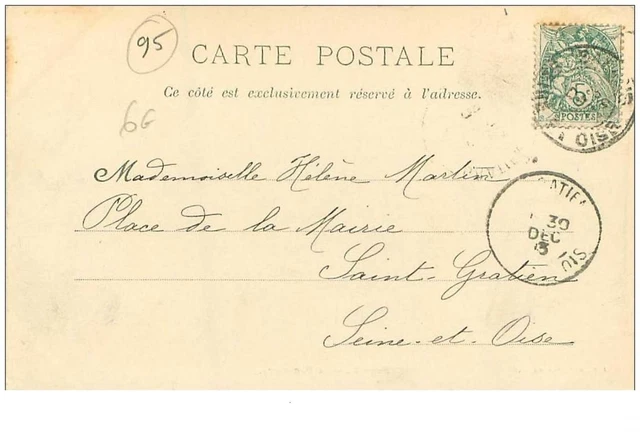 95
CARTE POSTALE
Ce côté est exclusivement réservé à l'adresse.
6G
5
POSTES
Mademoiselle Hélène Martin
Place de la Mairie
Saint-Gratien
Seine-et-Oise
30
DEC